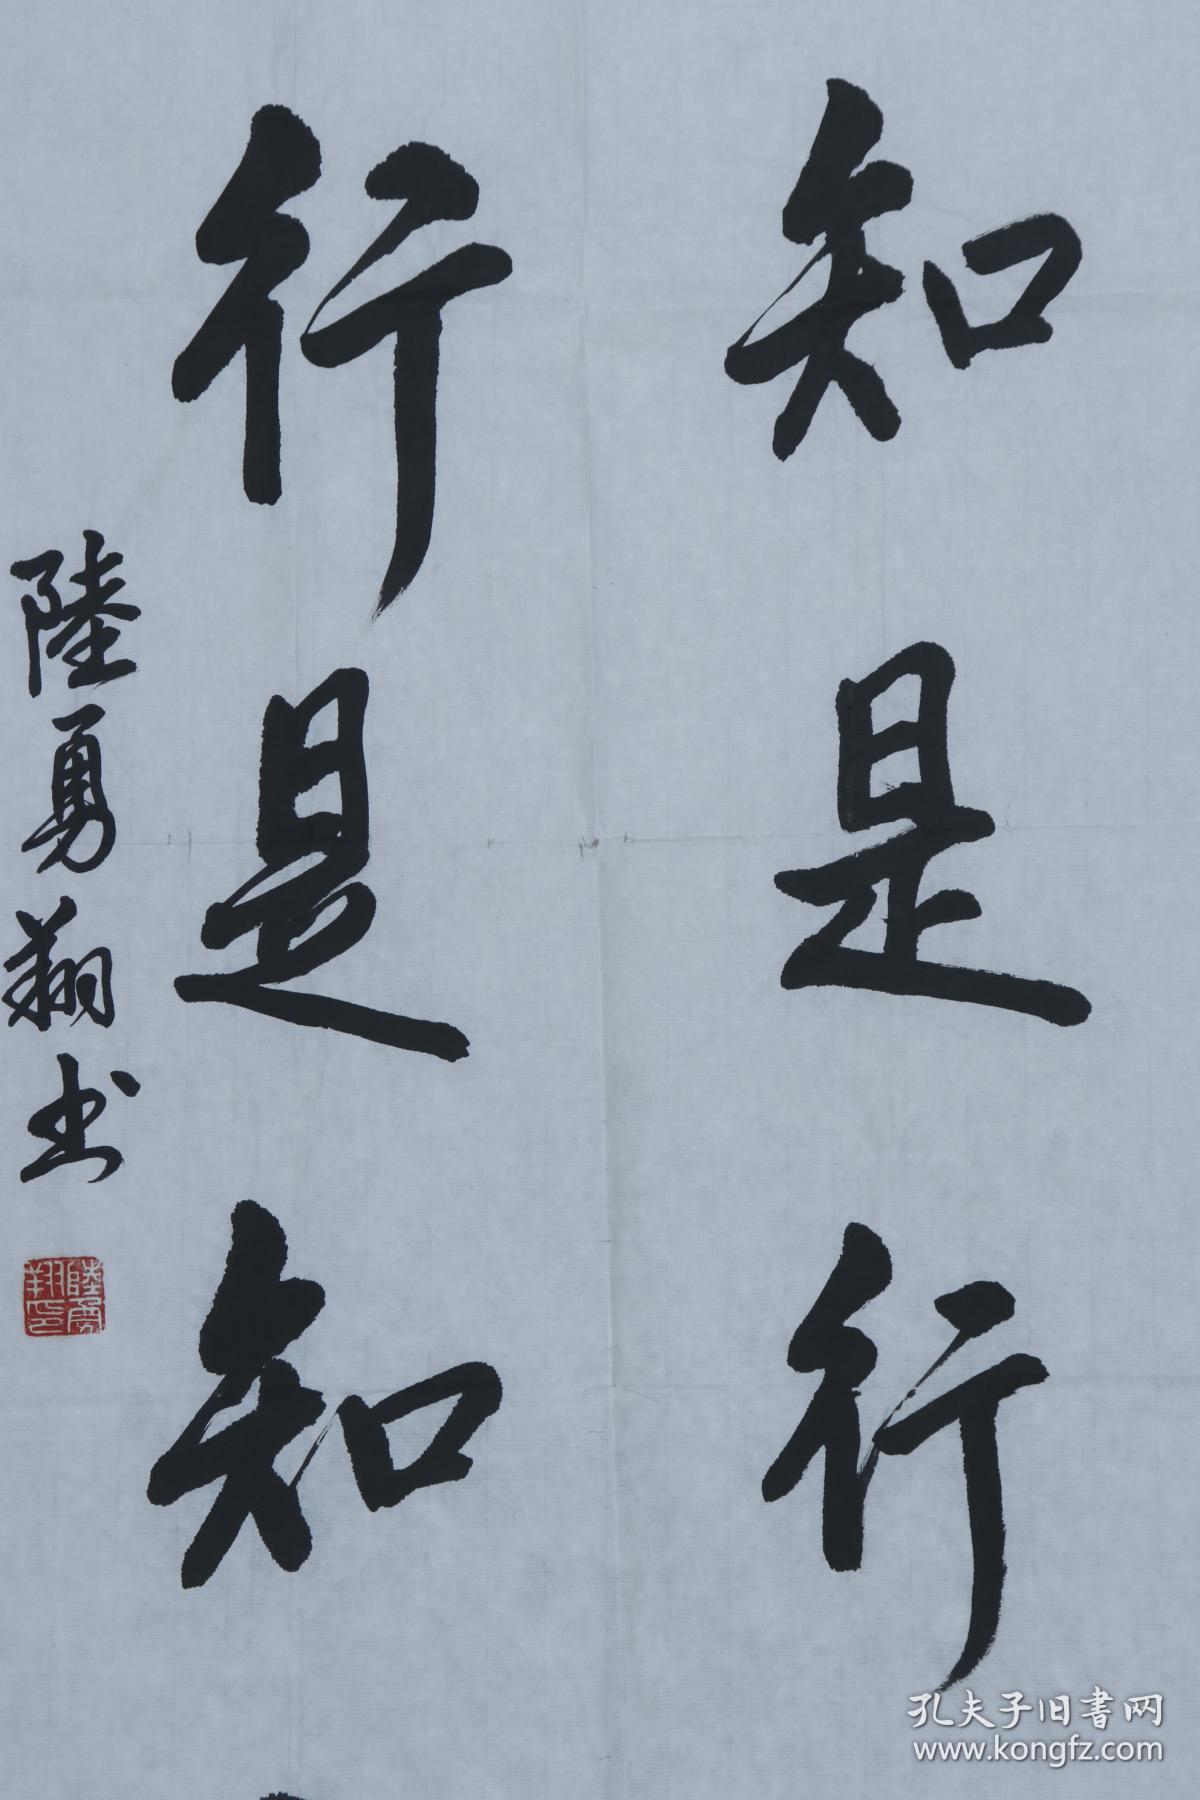 知是行
行是知
陸勇翔书
陸勇翔印
孔夫子旧书网
www.kongfz.com